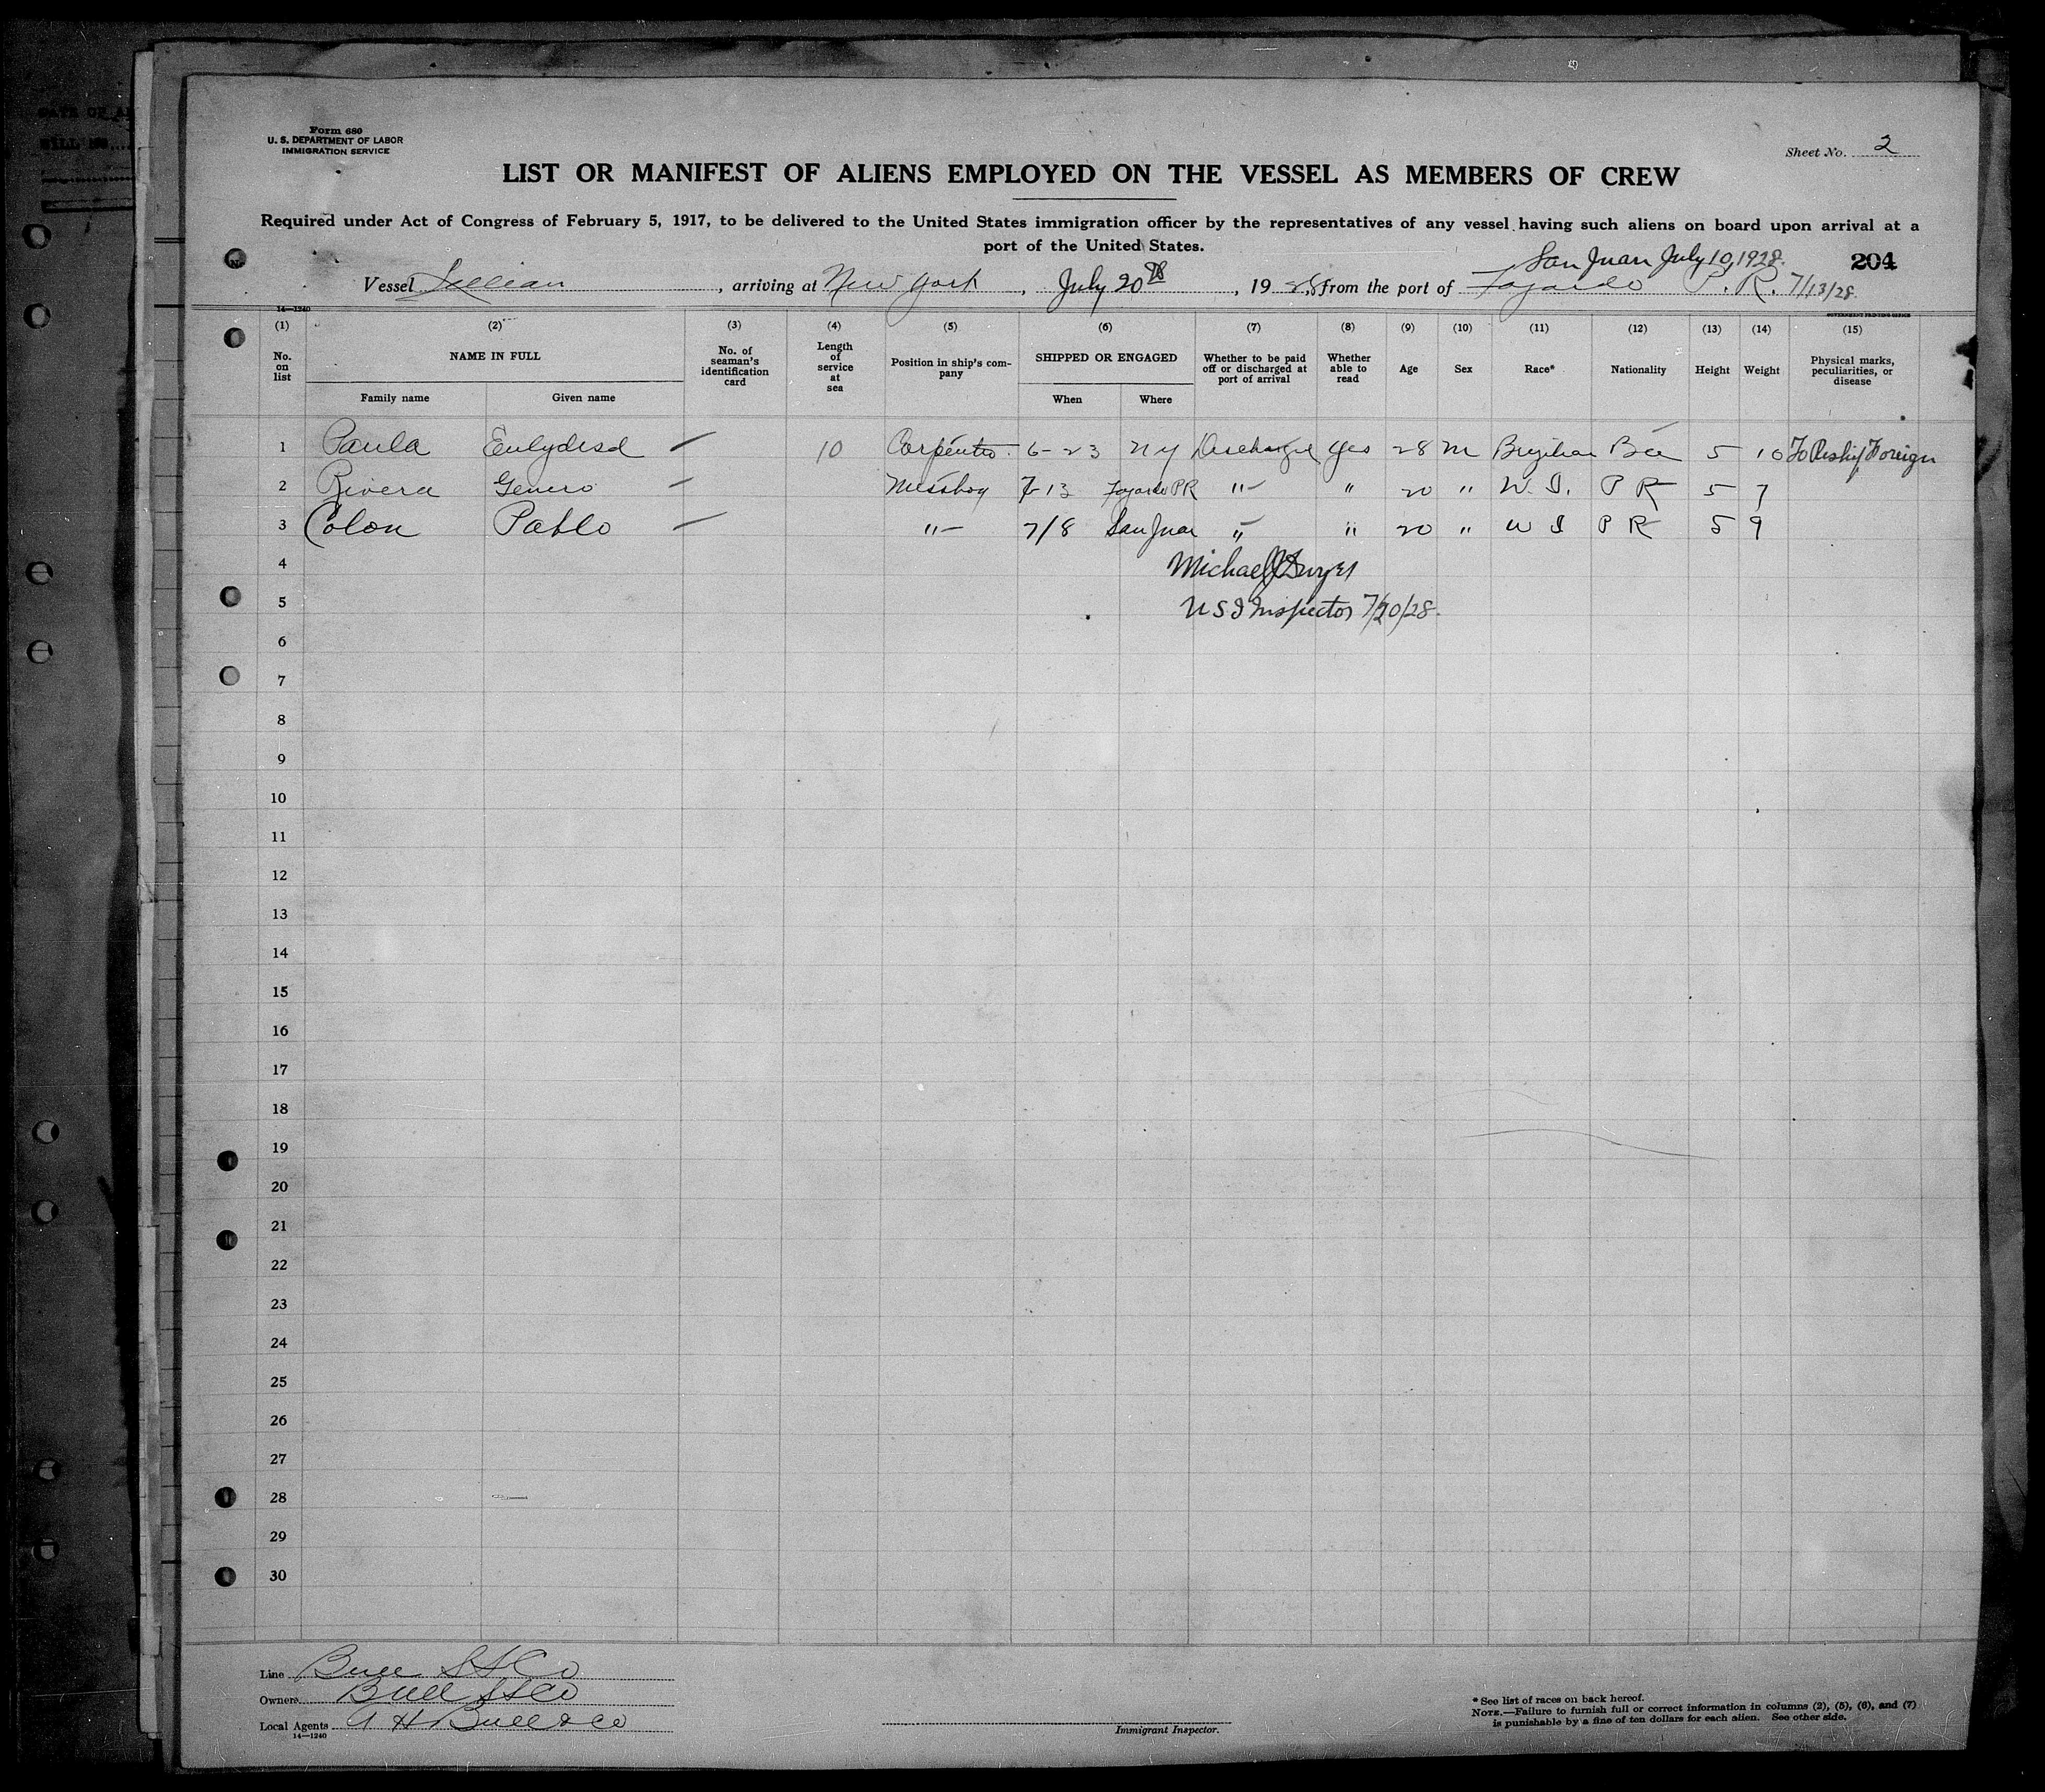 Form 680
U. S. DEPARTMENT OF LABOR
IMMIGRATION SERVICE
Sheet No. 2
LIST OR MANIFEST OF ALIENS EMPLOYED ON THE VESSEL AS MEMBERS OF CREW
Required under Act of Congress of February 5, 1917, to be delivered to the United States immigration officer by the representatives of any vessel having such aliens on board upon arrival at a
port of the United States.
San Juan July 10, 1928. 204
Vessel Lillian, arriving at New York, July 20th, 1928, from the port of Fajardo P. R. 7/13/28
14—1240 GOVERNMENT PRINTING OFFICE
(1) (2) (3) (4) (5) (6) (7) (8) (9) (10) (11) (12) (13) (14) (15)
No. on list NAME IN FULL No. of seaman's identification card Length of service at sea Position in ship's company SHIPPED OR ENGAGED Whether to be paid off or discharged at port of arrival Whether able to read Age Sex Race* Nationality Height Weight Physical marks, peculiarities, or disease
Family name Given name When Where
1 Paula — 10 Carpenter 6-23 NY Discharged yes 28 M Brazilian 5 10 To Reship Foreign
2 Rivera Genero — Messboy 7-13 Fajardo PR " " 20 " W. I. P R 5 7
3 Colon Pablo — " 7/8 San Juan " " 20 " W I P R 5 9
4 Michael J Dwyer
5 U S I Inspector 7/20/28.
6
7
8
9
10
11
12
13
14
15
16
17
18
19
20
21
22
23
24
25
26
27
28
29
30
Line Bull S S Co
Owners Bull S S Co
Local Agents A H Bull & Co
14—1240
Immigrant Inspector.
* See list of races on back hereof.
NOTE.—Failure to furnish full or correct information in columns (2), (5), (6), and (7)
is punishable by a fine of ten dollars for each alien. See other side.